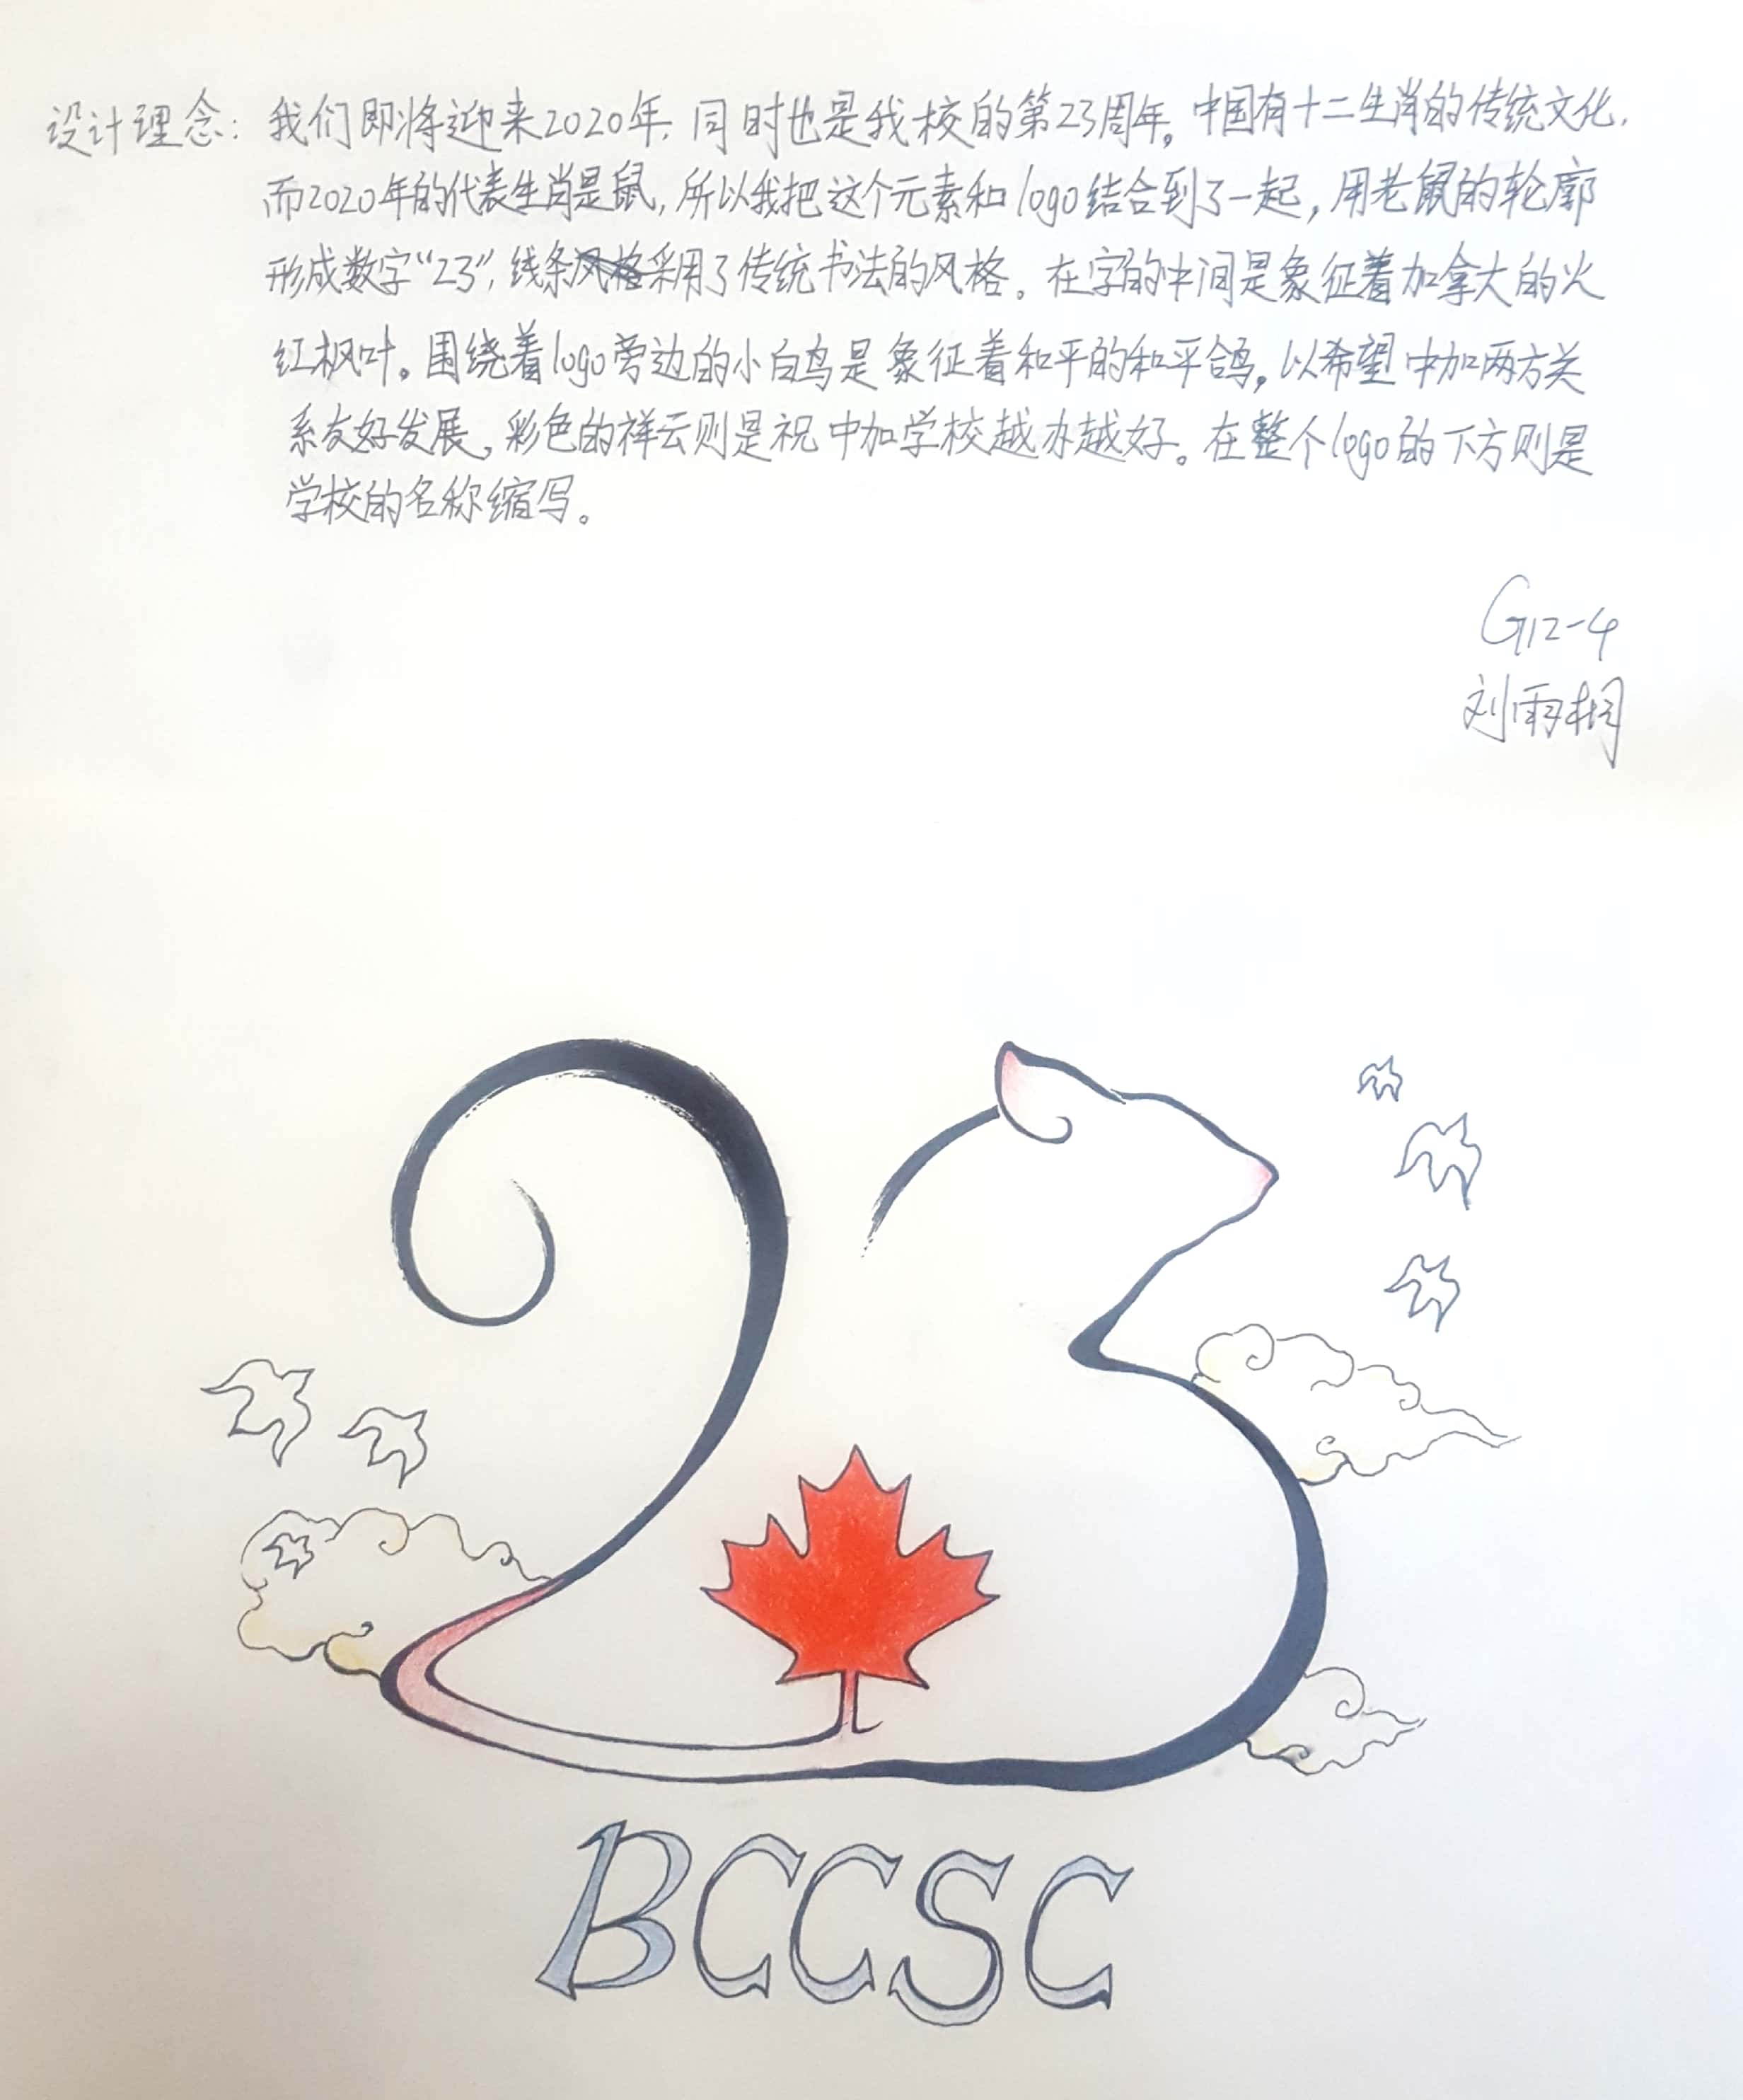 设计理念：我们即将迎来2020年，同时也是我校的第23周年。中国有十二生肖的传统文化，
而2020年的代表生肖是鼠，所以我把这个元素和logo结合到了一起，用老鼠的轮廓
形成数字“23”，线条采用了传统书法的风格。在字的中间是象征着加拿大的火
红枫叶。围绕着logo旁边的小白鸟是象征着和平的和平鸽，以希望中加两方关
系友好发展，彩色的祥云则是祝中加学校越办越好。在整个logo的下方则是
学校的名称缩写。
G12-4
刘雨桐
23
BCCSC